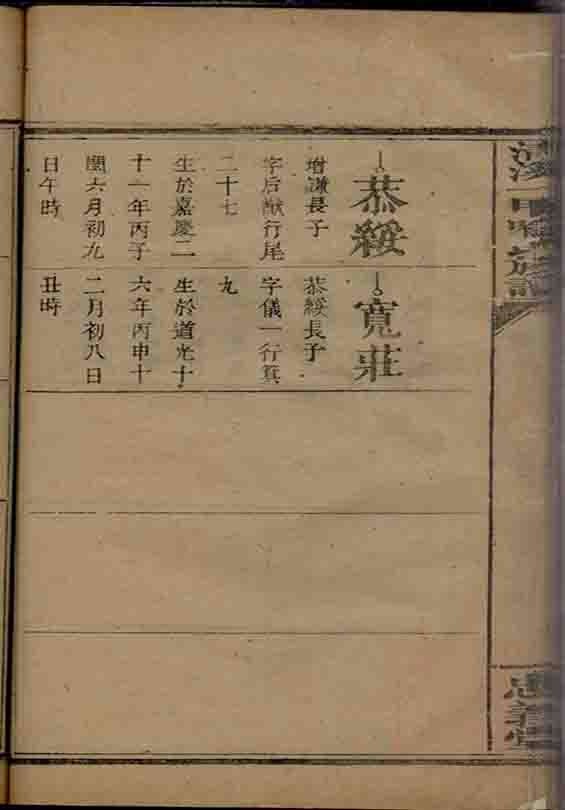 恭綏
增謙長子
字后猷行尾
二十七
生於嘉慶二
十一年丙子
閏六月初九
日午時
寬莊
恭綏長子
字儀一行箕
九
生於道光十
六年丙申十
二月初八日
丑時
族譜
忠義堂